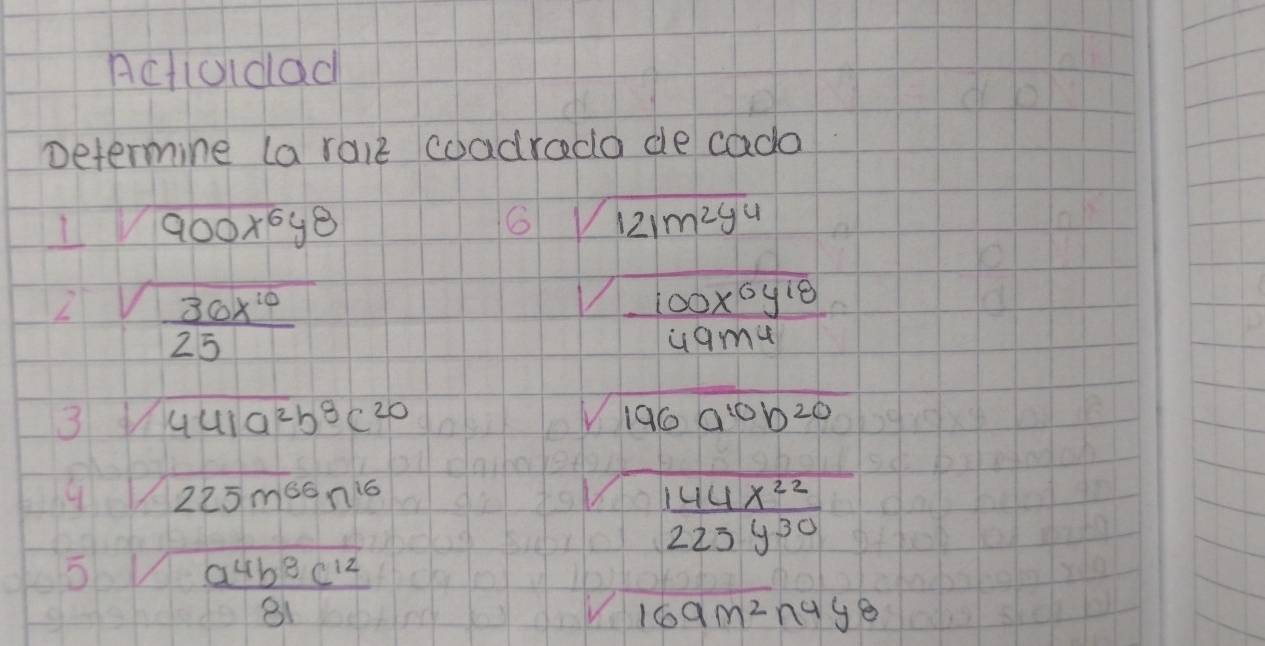 Actividad
Determine la raiz coadrada de cada
1 √900x⁶y⁸
6 √121m²y⁴
2 √36x¹⁰/25
√100x⁶y¹⁸/49m⁴
3 √441a²b⁸c²⁰
√196 a¹⁰b²⁰
4 √225m⁶⁶n¹⁶
√144x²²/225y³⁰
5 √a⁴b⁸c¹²/81
√169m²n⁴y⁸